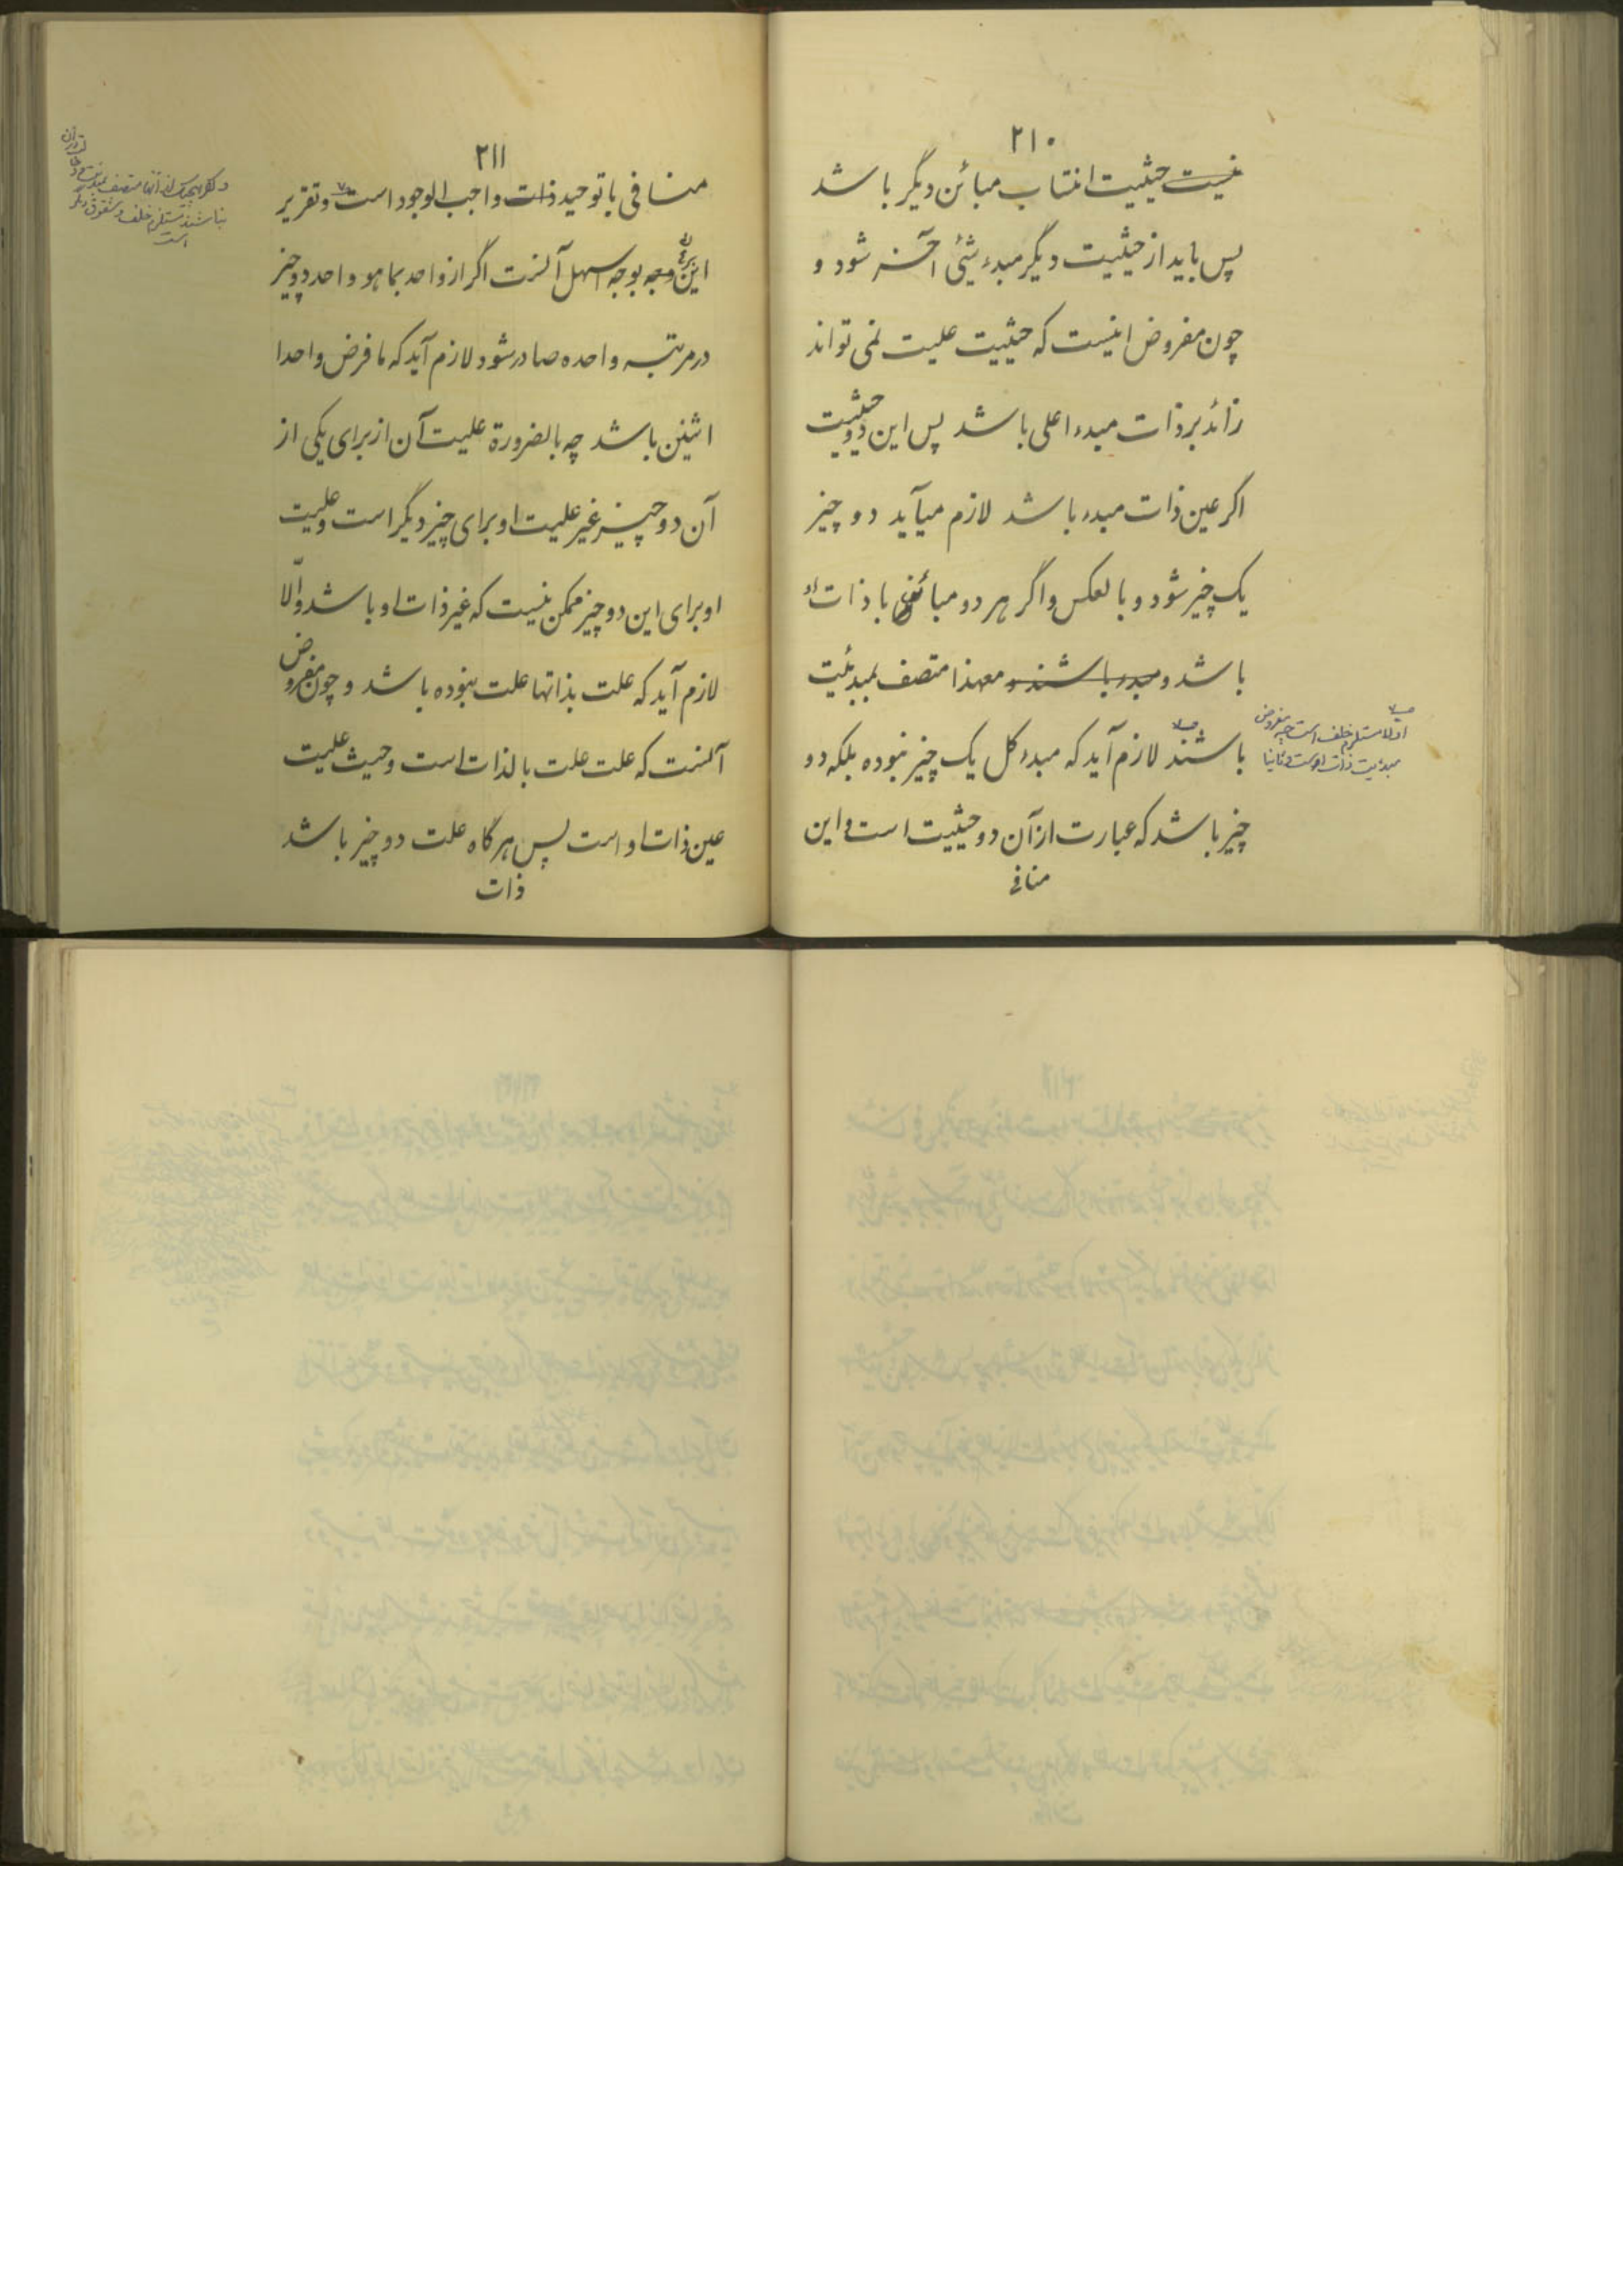 ۲۱۰
نیست حیثیت انتساب مبائن دیگر باشد
پس باید از حیثیت دیگر مبدء شئی آخر شود و
چون مفروض اینست که حیثیت علیت نمی تواند
زائد بر ذات مبدء اعلی باشد پس این دو حیثیت
اکر عین ذات مبدء باشد لازم میآید دو چیز
یک چیز شود و بالعکس واگر هر دو مبائن با ذات او
باشد و مبدء باشند و معهذا متصف بمبدئیت
باشند لازم آید که مبدء کل یک چیز نبوده بلکه دو
چیز باشد که عبارت از آن دو حیثیت است و این
منافی
اولا مستلزم خلف است چه مفروض
مبدئیت ذات اوست و ثانیا
۲۱۱
منافی با توحید ذات واجب الوجود است و تقریر
این وجه بوجه اسهل آنست اگر از واحد بما هو واحد دو چیز
در مرتبه واحده صادر شود لازم آید که ما فرض واحدا
اثنین باشد چه بالضرورة علیت آن از برای یکی از
آن دو چیز غیر علیت او برای چیز دیگر است و علیت
او برای این دو چیز ممکن نیست که غیر ذات او باشد والّا
لازم آید که علت بذاتها علت نبوده باشد و چون مفروض
آنست که علت علت بالذات است و حیث علیت
عین ذات او است پس هر گاه علت دو چیز باشد
ذات
متصف بمبدئیت
نباشند مستلزم خلف و شقوق دیگر
است